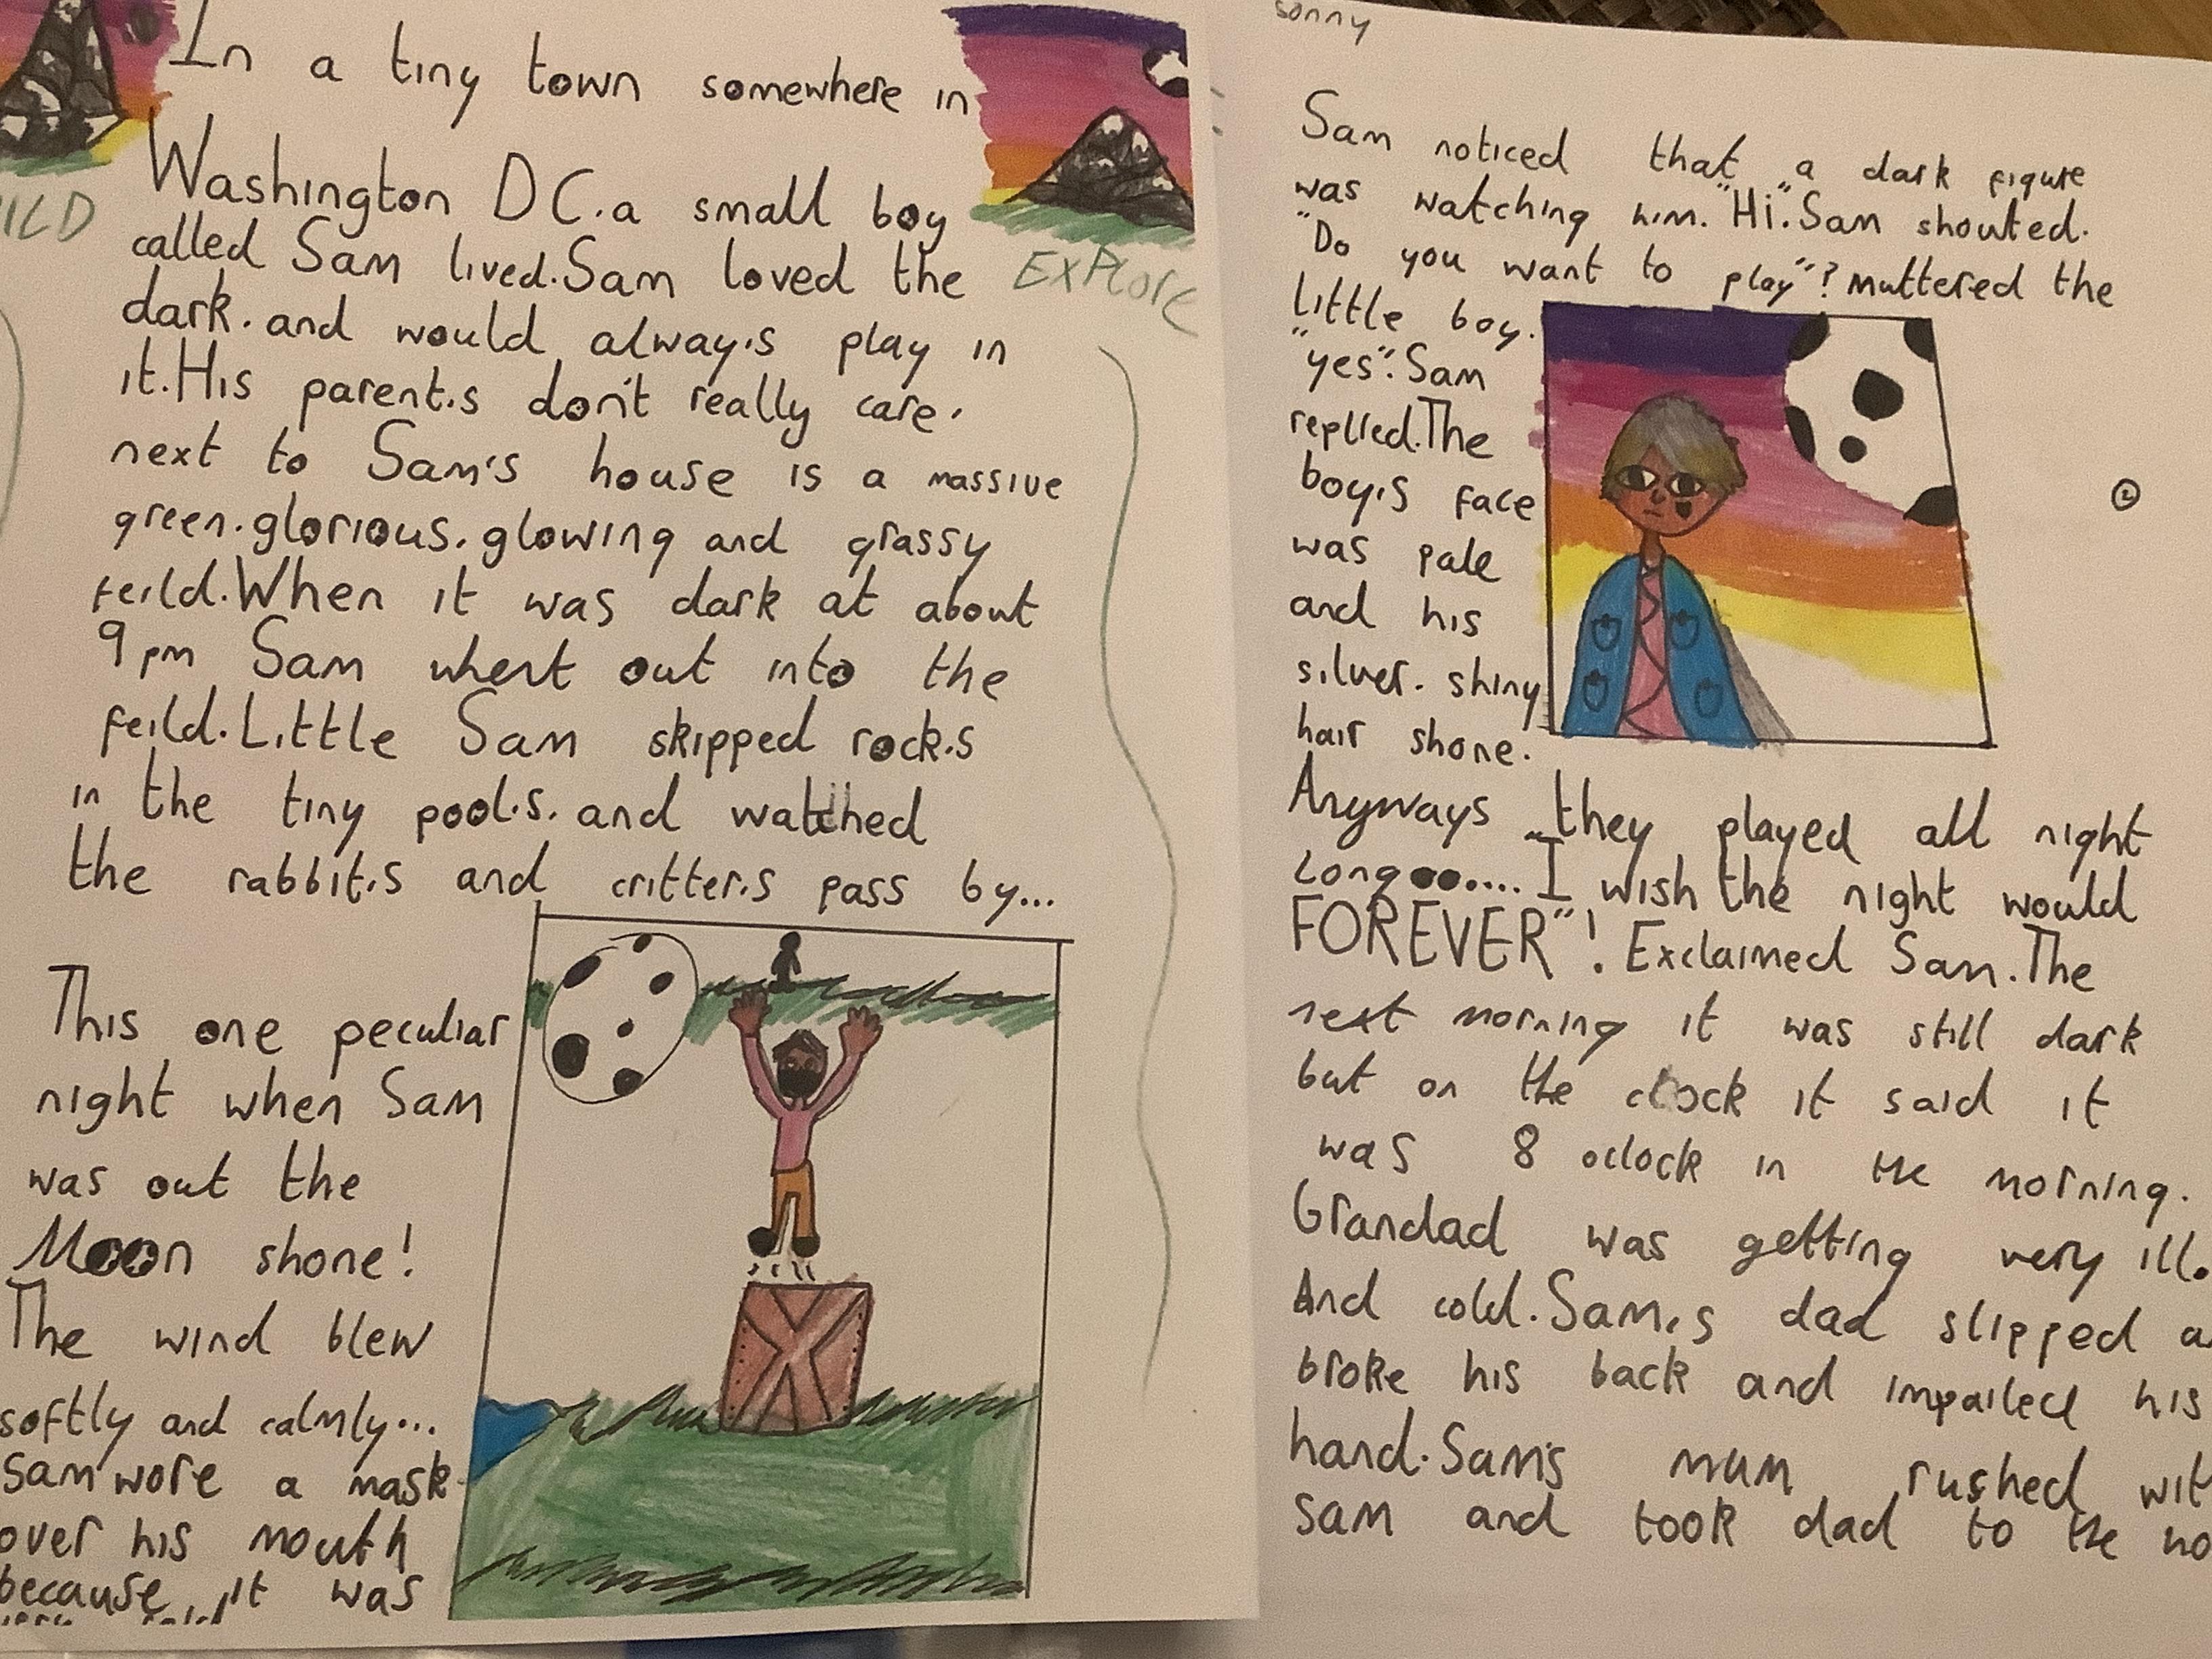 In a tiny town somewhere in
Washington DC.a small boy
called Sam lived.Sam loved the
dark.and would always play in
it.His parent.s don't really care.
next to Sam's house is a massive
green.glorious.glowing and grassy
feild.When it was dark at about
9pm Sam whent out into the
feild.Little Sam skipped rock.s
in the tiny pool.s.and watched
the rabbit.s and critter.s pass by...
This one peculiar
night when Sam
was out the
Moon shone!
The wind blew
softly and calmly...
Sam wore a mask
over his mouth
because it was
ILD
EXPLORE
sonny
Sam noticed that a dark figure
was watching him."Hi".Sam shouted.
"Do you want to play"? muttered the
little boy.
"yes".Sam
replied.The
boy.s face
was pale
and his
silver. shiny
hair shone.
2
Anyways they played all night
Long...... "I wish the night would
FOREVER"!. Exclaimed Sam.The
next morning it was still dark
but on the clock it said it
was 8 oclock in the morning.
Grandad was getting very ill.
And cold.Sam,s dad slipped a
broke his back and impailed his
hand.Sam's mum rushed wit
sam and took dad to the ho